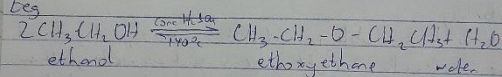 eg
2CH₃CH₂OH ⇌ conc H₂SO₄ 140°C CH₃-CH₂-O-CH₂CH₃ + H₂O
ethanol ethoxyethane water